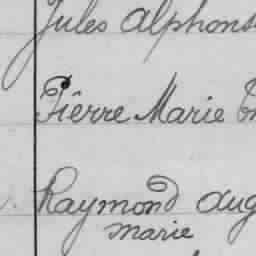 Jules Alphons
Pièrre Marie
Raymond Aug
Marie